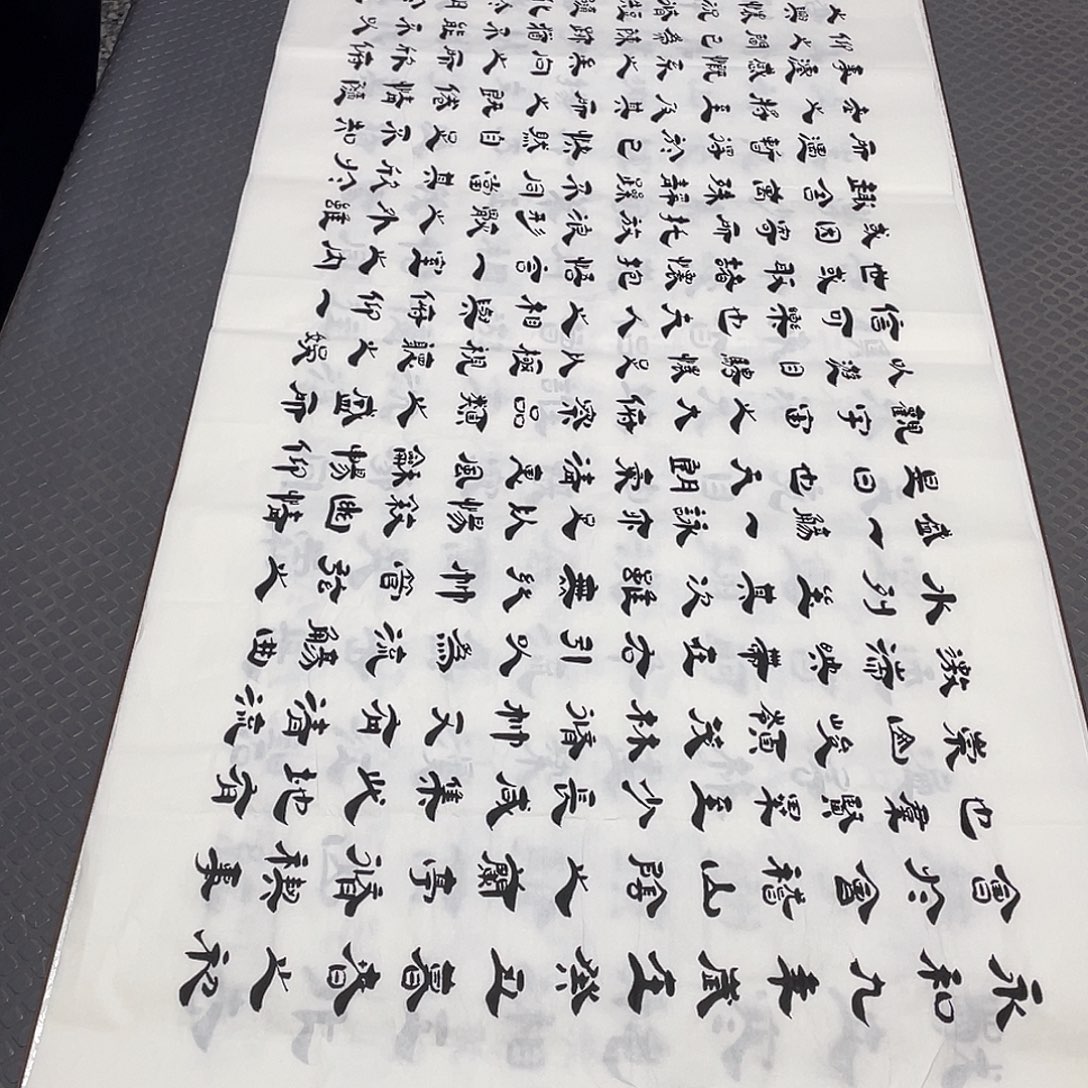 永和九年歲在癸丑暮春之初
會於會稽山陰之蘭亭脩禊事
也羣賢畢至少長咸集此地有
崇山峻領茂林脩竹又有清流
激湍暎帶左右引以為流觴曲
水列坐其次雖無絲竹管弦之
盛一觴一詠亦足以暢敘幽情
是日也天朗氣清惠風和暢仰
觀宇宙之大俯察品類之盛所
以遊目騁懷足以極視聽之娛
信可樂也夫人之相與俯仰一
世或取諸懷抱悟言一室之內
或因寄所託放浪形骸之外雖
趣舍萬殊靜躁不同當其欣於
所遇暫得於己快然自足不知
老之將至及其所之既惓情隨
事遷感慨係之矣向之所欣俛
仰之間已為陳迹猶不能不以
之興懷